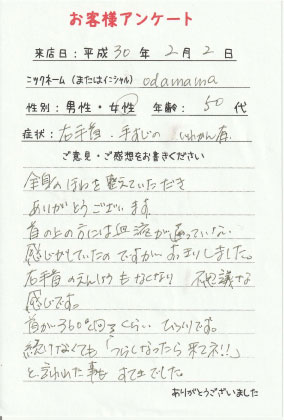 お客様アンケート
来店日：平成30年2月2日
ニックネーム（またはイニシャル） odamama
性別：男性・女性 年齢：50代
症状：右手首、手すじの いわかん有
ご意見・ご感想をお書きください
全身のほねを整えていただき
ありがとうございます
首の上の方には血液が通っていない
感じがしていたのですが おさまりました。
右手首のえんしょうもなくなり 不思議な
感じです。
首が360°回るくらい びっくりです。
続けなくても「つらくなったら来てネ!!」
と言われた事も すてきでした。
ありがとうございました